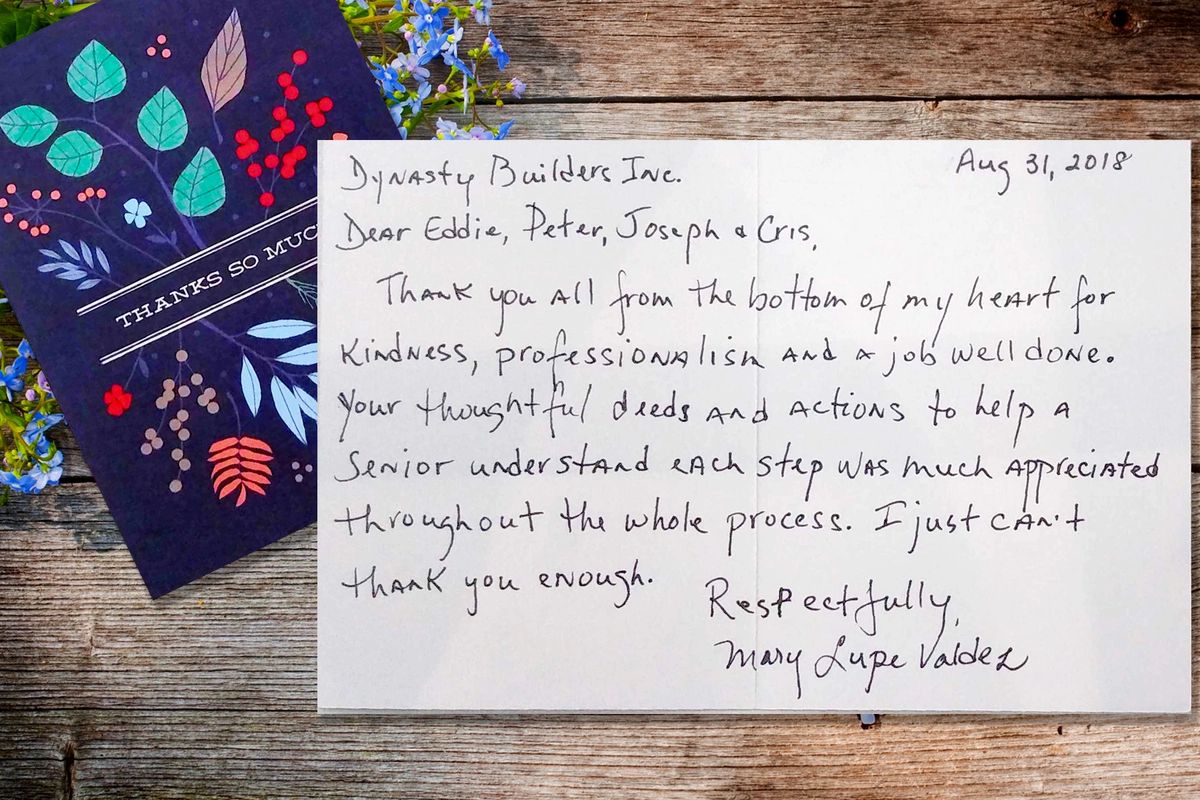 THANKS SO MUC
Dynasty Builders Inc.
Aug 31, 2018
Dear Eddie, Peter, Joseph & Cris,
Thank you all from the bottom of my heart for
kindness, professionalism and a job well done.
Your thoughtful deeds and actions to help a
senior understand each step was much appreciated
throughout the whole process. I just can't
thank you enough.
Respectfully,
Mary Lupe Valdez